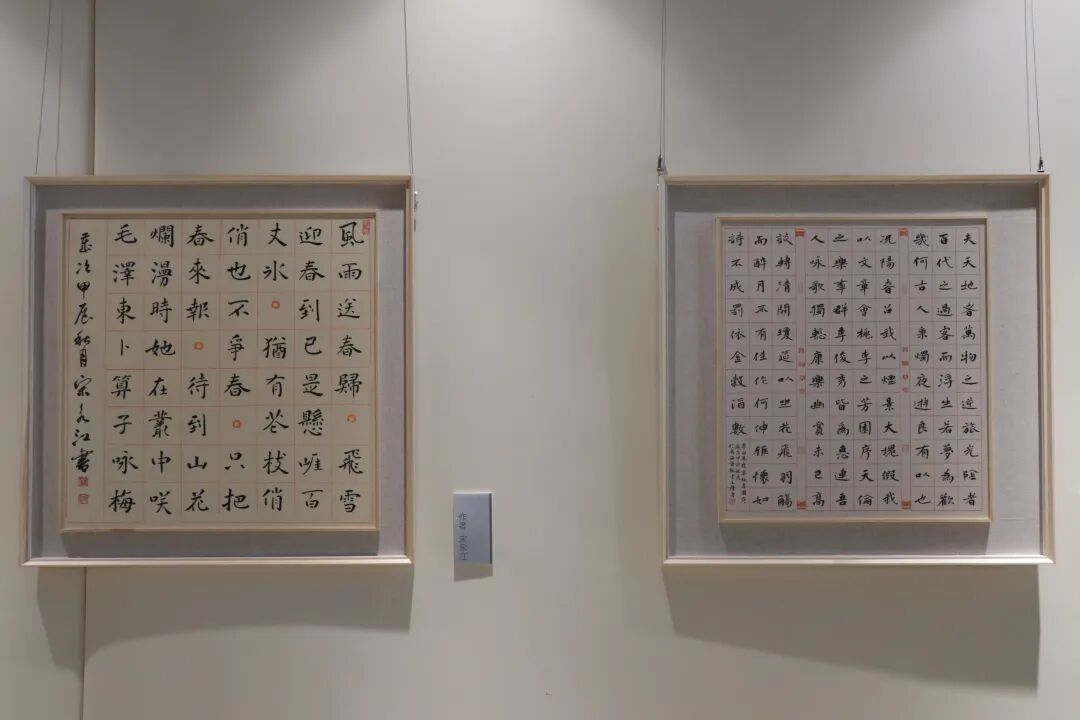 風雨送春歸。飛雪
迎春到已是懸崕百
丈氷。猶有花枝俏
俏也不爭春。只把
春來報。待到山花
爛漫時她在叢中咲
毛澤東卜算子咏梅
歲次甲辰秋月宋永江書
作者 宋永江
夫天地者萬物之逆旅光陰者
百代之過客而浮生若夢為歡
幾何古人秉燭夜遊良有以也
況陽春召我以煙景大塊假我
以文章會桃李之芳園序天倫
之樂事群季俊秀皆為惠連吾
人咏歌獨慙康樂幽賞未已高
談轉清開瓊筵以坐花飛羽觴
而醉月不有佳作何伸雅懷如
詩不成罰依金穀酒數